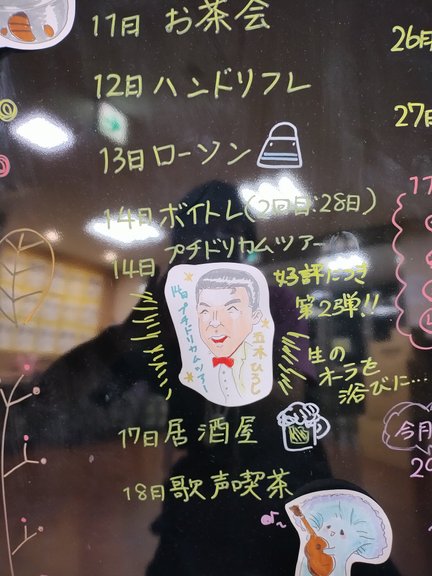 11日 お茶会
12日 ハンドリフレ
13日 ローソン
14日 ボイトレ(2回目:28日)
14日 プチドリカムツアー
好評につき
第2弾!!
14日 プチドリカムツアー
五木ひろし
生の
オーラを
浴びに…
17日 居酒屋
18日 歌声喫茶
26月
27日
今月